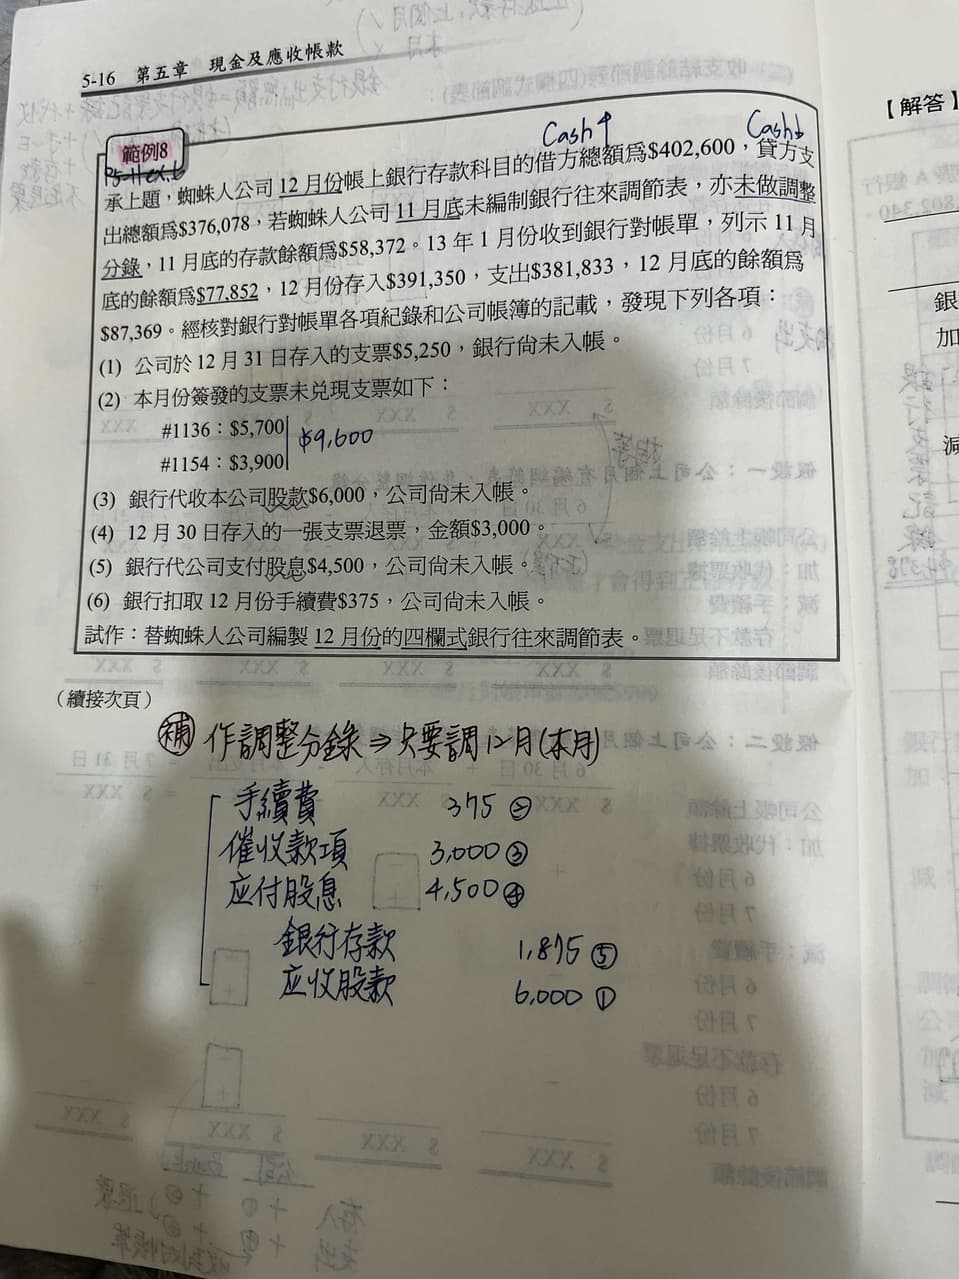 5-16 第五章 現金及應收帳款
範例8
Cash↑
Cash↓
承上題，蜘蛛人公司12月份帳上銀行存款科目的借方總額爲$402,600，貸方支
出總額爲$376,078，若蜘蛛人公司11月底未編制銀行往來調節表，亦未做調整
分錄，11月底的存款餘額爲$58,372。13年1月份收到銀行對帳單，列示11月
底的餘額爲$77,852，12月份存入$391,350，支出$381,833，12月底的餘額爲
$87,369。經核對銀行對帳單各項紀錄和公司帳簿的記載，發現下列各項：
(1) 公司於12月31日存入的支票$5,250，銀行尚未入帳。
(2) 本月份簽發的支票未兌現支票如下：
#1136：$5,700
$9,600
#1154：$3,900
(3) 銀行代收本公司股款$6,000，公司尚未入帳。
(4) 12月30日存入的一張支票退票，金額$3,000。
(5) 銀行代公司支付股息$4,500，公司尚未入帳。
(6) 銀行扣取12月份手續費$375，公司尚未入帳。
試作：替蜘蛛人公司編製12月份的四欄式銀行往來調節表。
（續接次頁）
補 作調整分錄⇒只要調12月(本月)
手續費 375 ②
催收款項 3,000 ③
应付股息 4,500 ④
銀行存款 1,875 ⑤
应收股款 6,000 ①
【解答】
銀
加
減